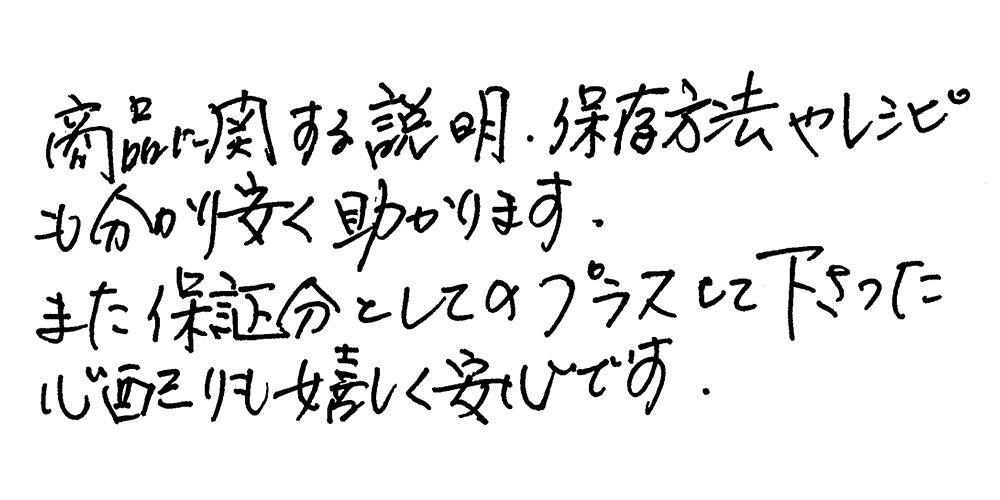 商品に関する説明、保存方法やレシピ
も分かり安く助かります。
また保証分としてのプラスして下さった
心配りも嬉しく安心です。